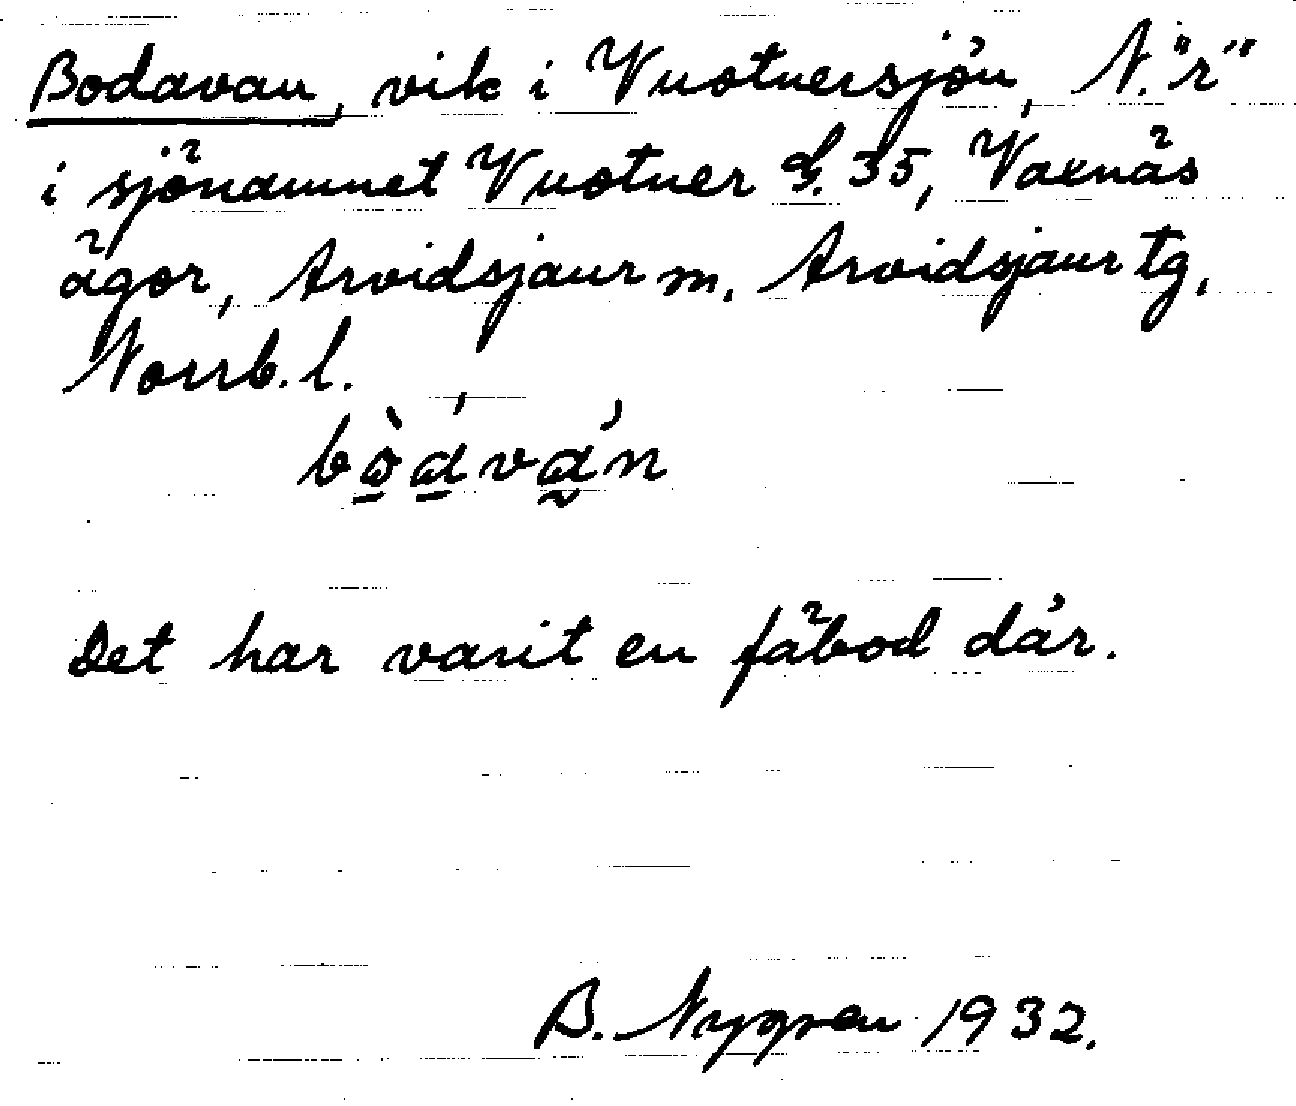 Bodavan, vik i Vuotnersjön, N. "r"
i sjönamnet Vuotner G. 35, Vaxnäs
ägor, Arvidsjaur m. Arvidsjaur tg,
Norrb. l.
Det har varit en fäbod där.
B. Nygren 1932.